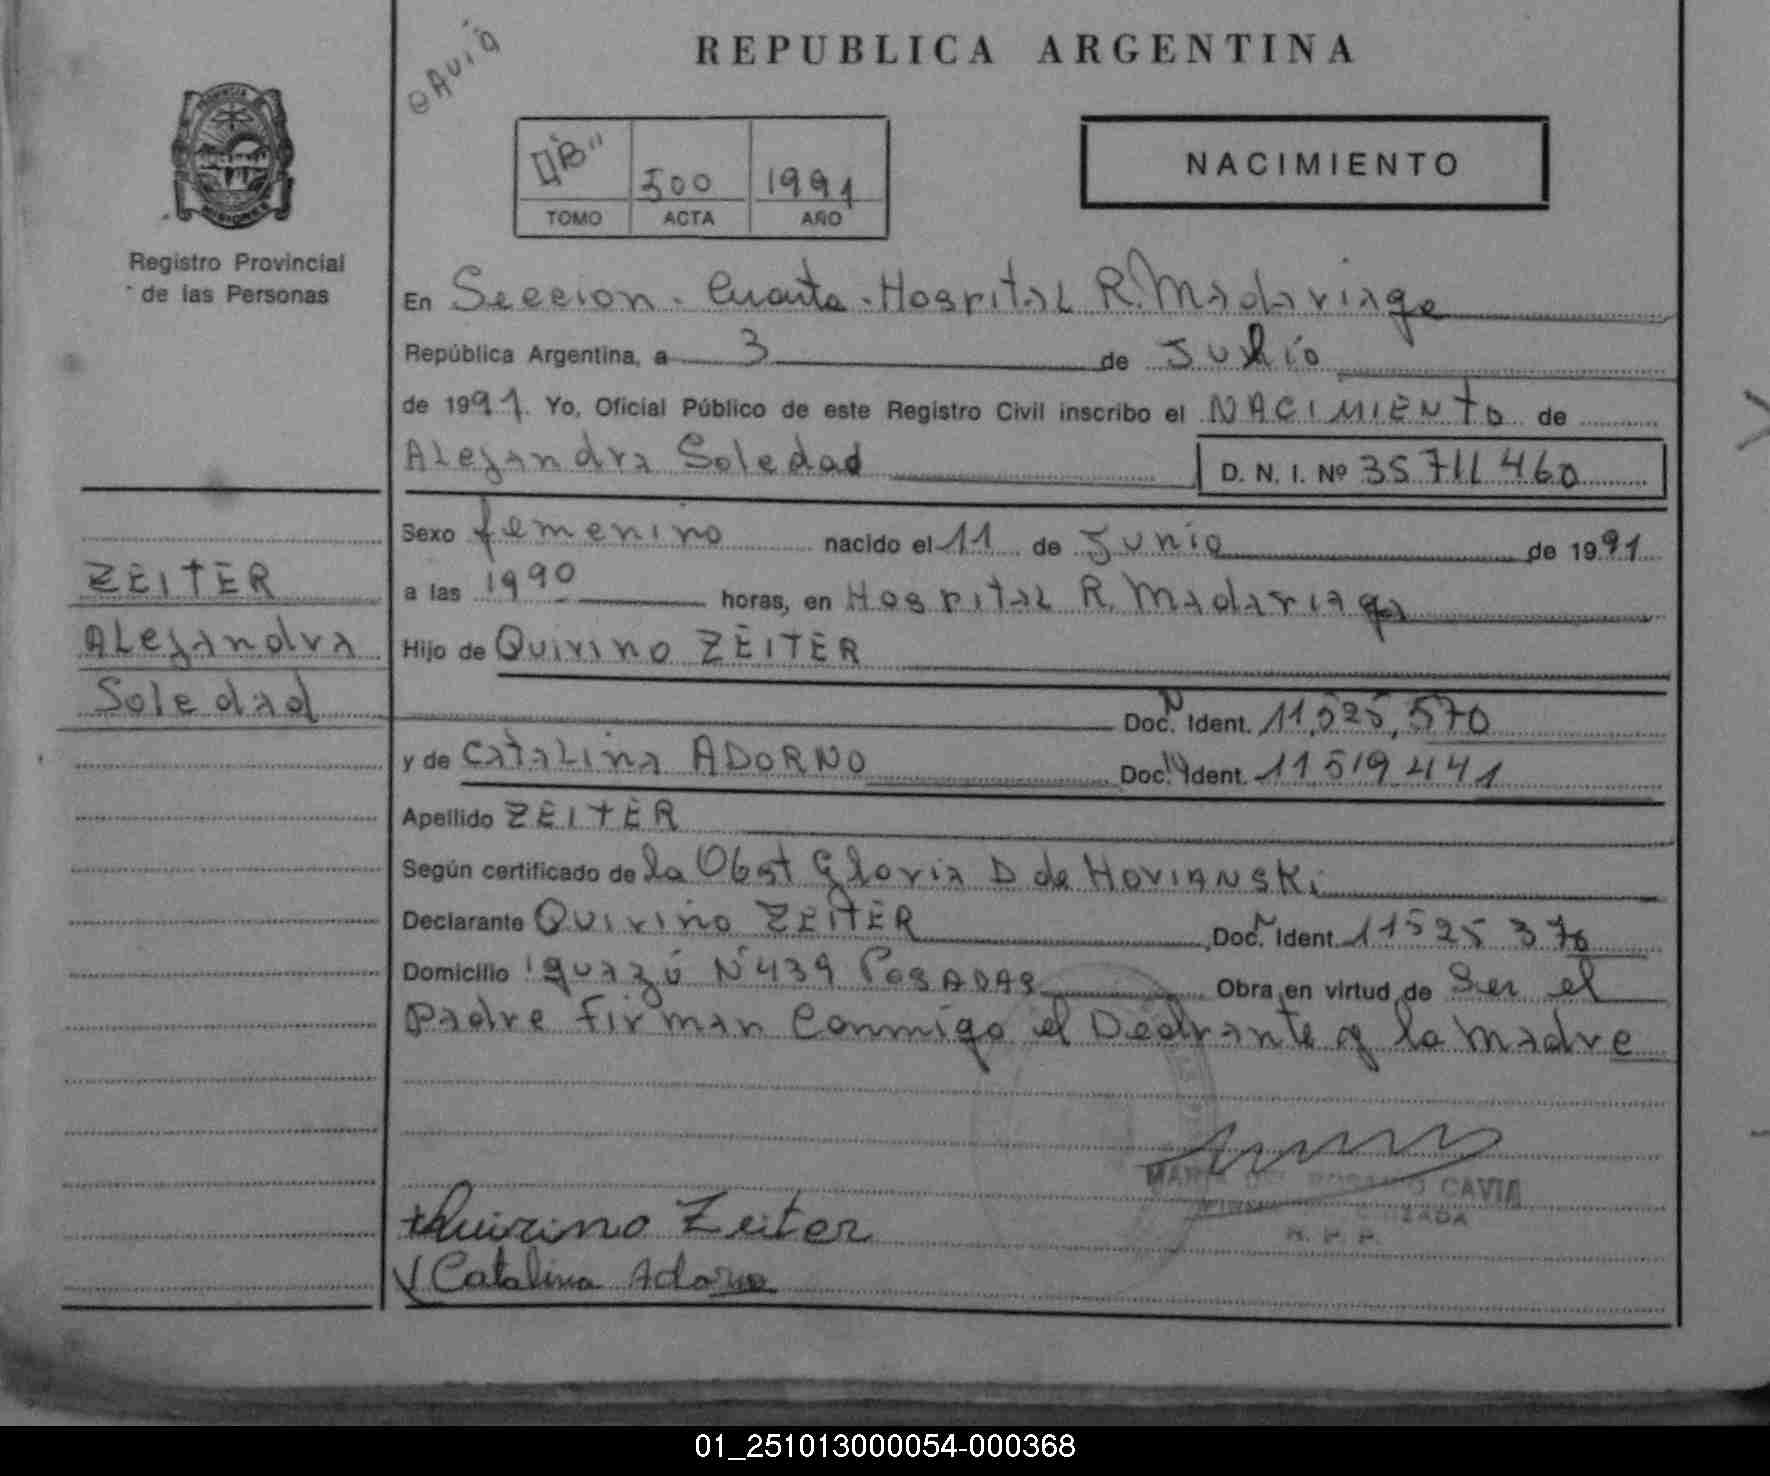 cavia
REPUBLICA ARGENTINA
PROVINCIA
MISIONES
NACIMIENTO
"B" 500 1991
TOMO ACTA AÑO
Registro Provincial
de las Personas
En Seccion - Cuarta - Hospital R. Madariaga
República Argentina, a 3 de Julio
de 1991. Yo, Oficial Público de este Registro Civil inscribo el NACIMIENTO de
Alejandra Soledad
D. N. I. Nº 35711460
Sexo femenino nacido el 11 de Junio de 1991
a las 1990 horas, en Hospital R. Madariaga
Hijo de Quirino ZEITER
Doc. N Ident. 11,525,570
y de Catalina ADORNO Doc. N Ident. 11519441
Apellido ZEITER
Según certificado de la Obst Gloria D de HOVIANSKi
Declarante Quirino ZEITER Doc. N Ident. 11525370
Domicilio Iguazú Nº 439 POSADAS Obra en virtud de Ser el
Padre Firman Conmigo el Declrante y la Madre
ZEITER
Alejandra
Soledad
MARIA DEL ROSARIO CAVIA
R. P. P.
Quirino Zeiter
Catalina Adorno
01_251013000054-000368